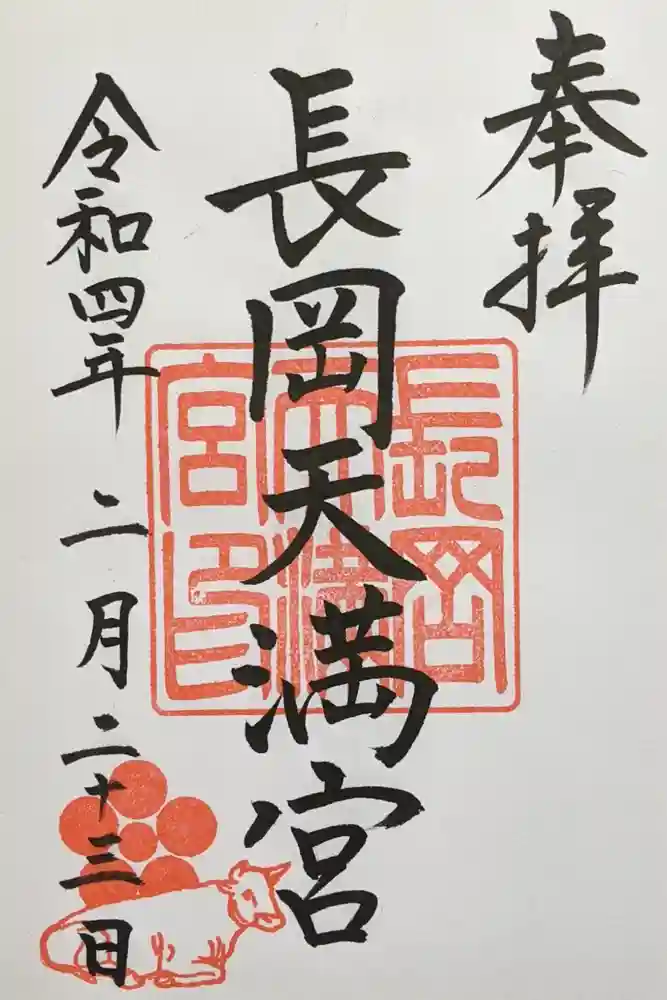 奉拝
長岡天満宮
令和四年 二月二十三日
長岡
天満
宮印